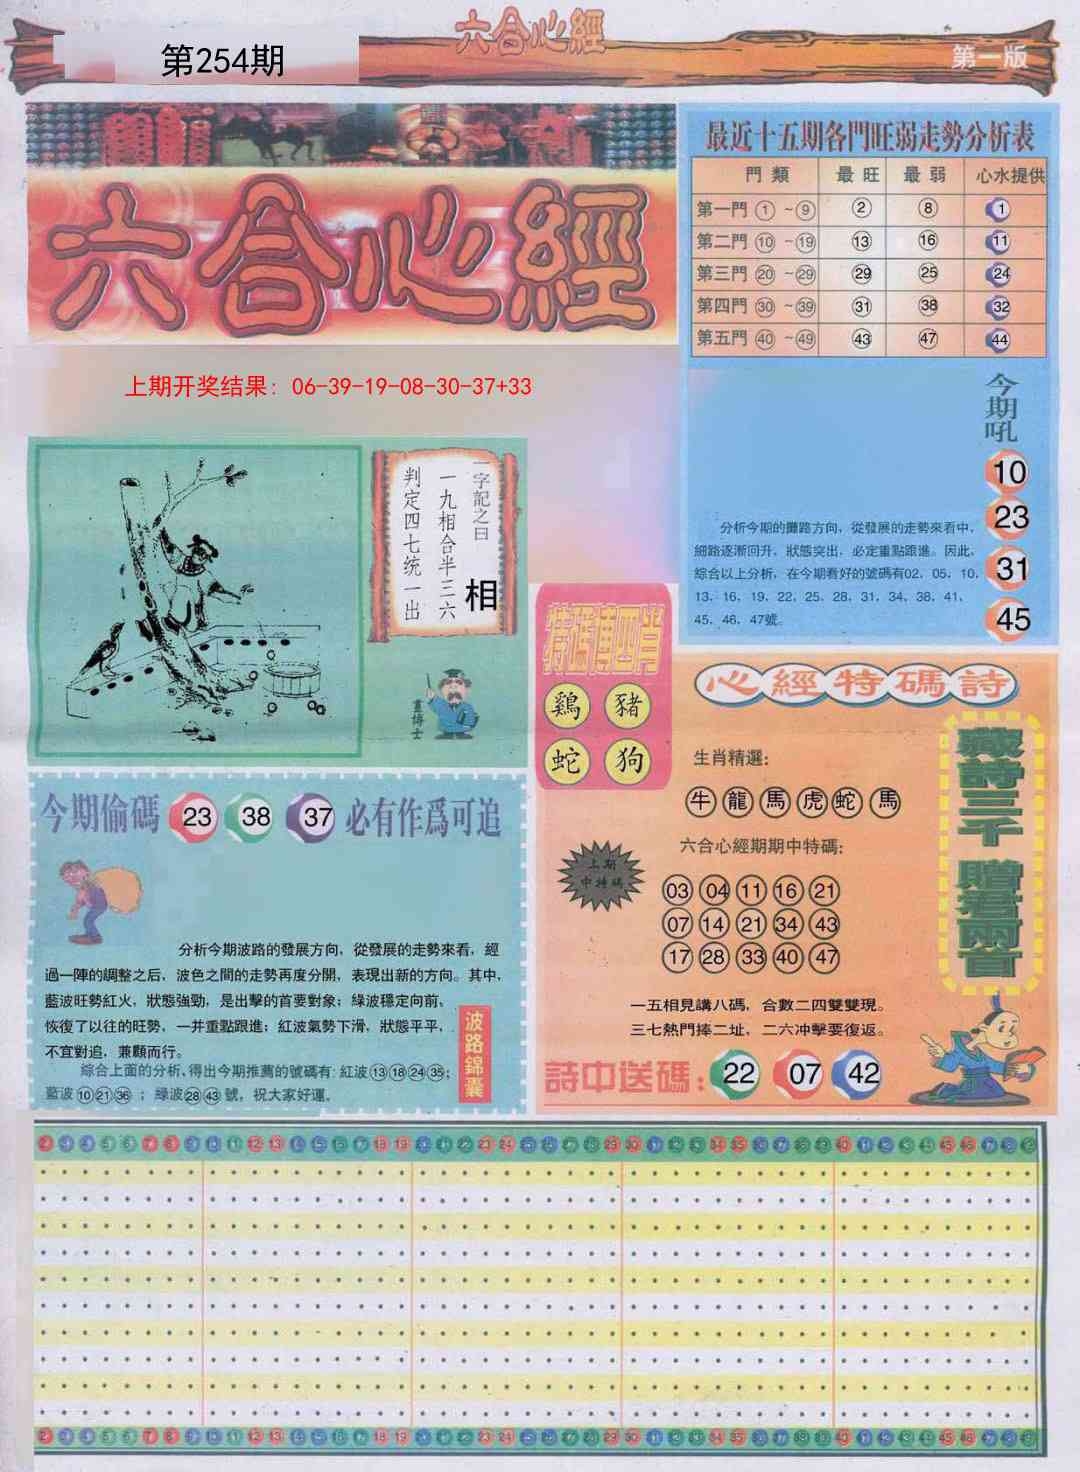 六合心經
第254期
第一版
六合心經
最近十五期各門旺弱走勢分析表
門類 最旺 最弱 心水提供
第一門 ①~⑨ 2 8 1
第二門 ⑩~⑲ 13 16 11
第三門 ⑳~㉙ 29 25 24
第四門 ㉚~㊴ 31 38 32
第五門 ㊵~㊾ 43 47 44
上期开奖结果: 06-39-19-08-30-37+33
今期吼
10
23
31
45
分析今期的攤路方向，從發展的走勢來看中，
細路逐漸回升，狀態突出，必定重點跟進。因此，
綜合以上分析，在今期看好的號碼有02、05、10、
13、16、19、22、25、28、31、34、38、41、
45、46、47號。
一字記之曰
相
一九相合半三六
判定四七统一出
畫博士
特碼博四肖
鷄 豬
蛇 狗
心經特碼詩
生肖精選:
牛 龍 馬 虎 蛇 馬
六合心經期期中特碼:
上期
中特碼
03 04 11 16 21
07 14 21 34 43
17 28 33 40 47
一五相見講八碼，合數二四雙雙現。
三七熱門捧二址，二六冲擊要復返。
詩中送碼: 22 07 42
藏詩三千 贈君兩首
今期偷碼 23 38 37 必有作爲可追
分析今期波路的發展方向，從發展的走勢來看，經
過一陣的調整之后，波色之間的走勢再度分開，表現出新的方向。其中，
藍波旺勢紅火，狀態強勁，是出擊的首要對象；綠波穩定向前，
恢復了以往的旺勢，一并重點跟進；紅波氣勢下滑，狀態平平，
不宜對追，兼顧而行。
綜合上面的分析，得出今期推薦的號碼有: 紅波⑬⑱㉔㉟；
藍波⑩㉑㊱；綠波㉘㊸號，祝大家好運。
波路錦囊